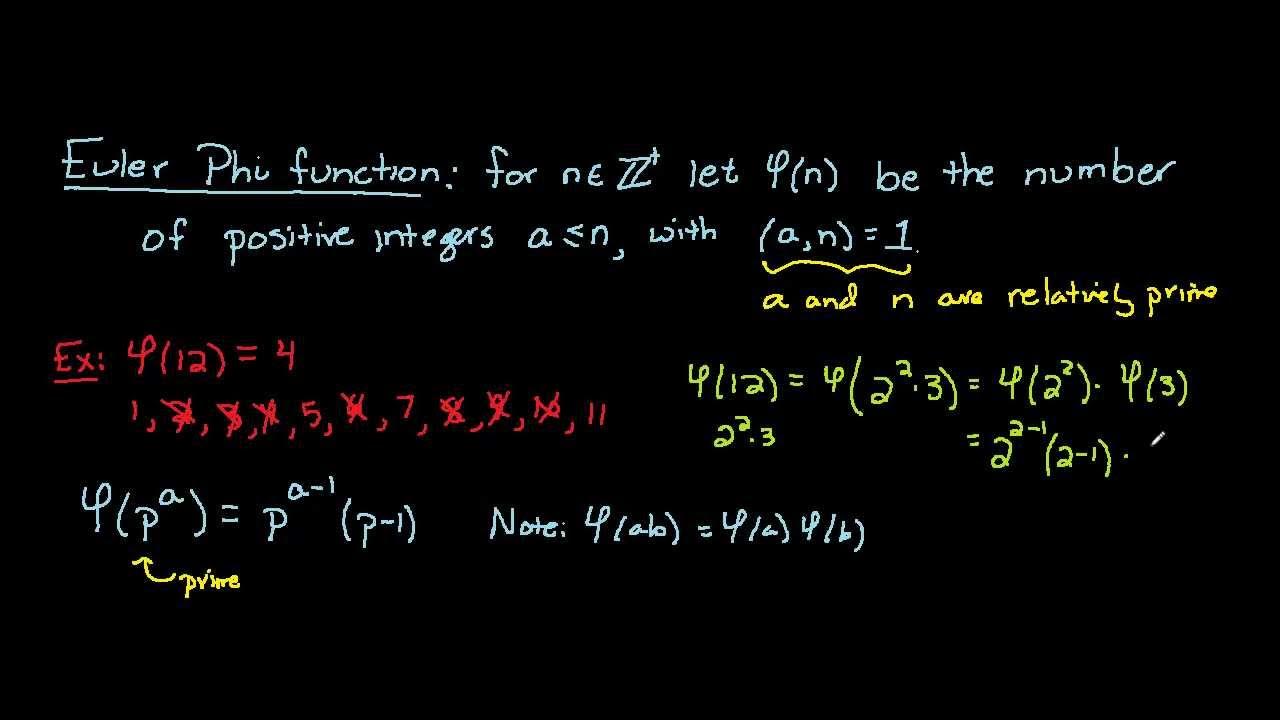 Euler Phi function: for n∈ℤ⁺ let φ(n) be the number
of positive integers a≤n, with (a,n)=1.
a and n are relatively prime
Ex: φ(12) = 4
1, 2, 3, 4, 5, 6, 7, 8, 9, 10, 11
φ(12) = φ(2²·3) = φ(2²)· φ(3)
2²·3
= 2²⁻¹(2-1)·
φ(pᵃ) = pᵃ⁻¹(p-1)
prime
Note: φ(ab) = φ(a) φ(b)